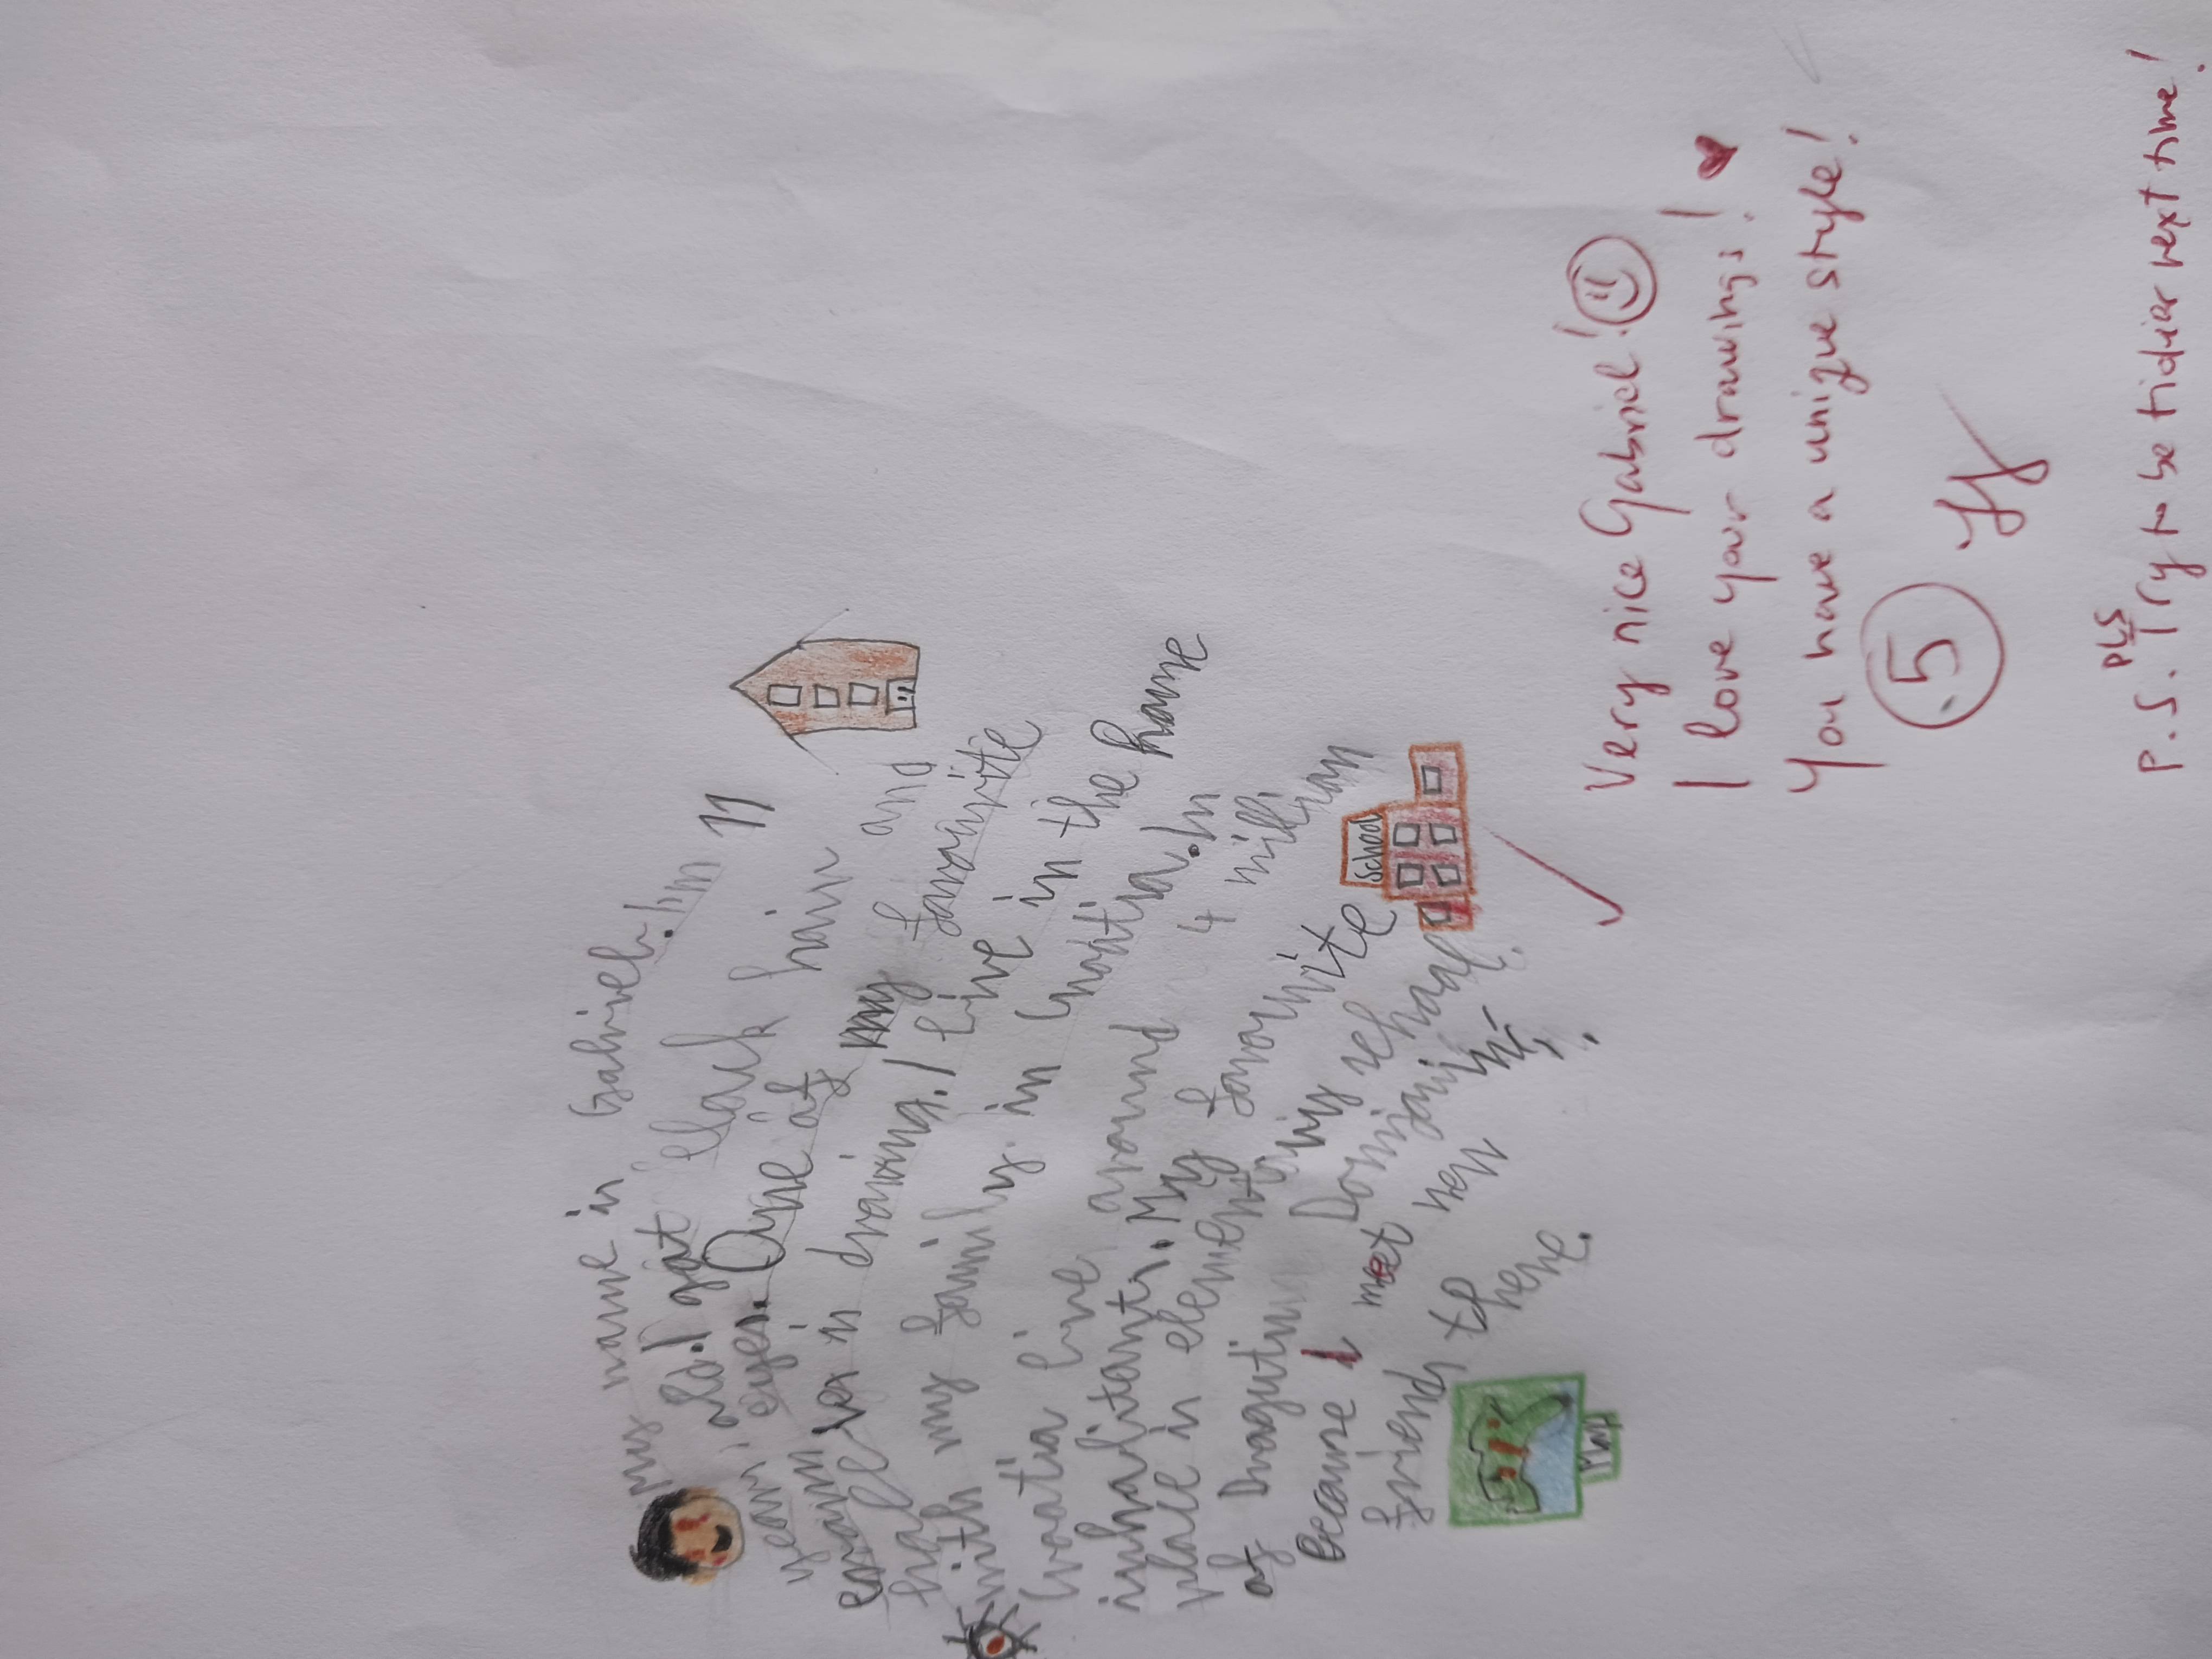 my name is Gabriel. Im 11
years old. I got black hair and
eyes. One of my favourite
is drawing. I live in the house
with my family. in Croatia. In
Croatia live around 4 million
inhabitants. My favourite
place is elementary school
of Dragutin Domjanić.
Because I met new
friends there.
School
Map
Very nice Gabriel!
I love your drawings!
You have a unique style!
5
PLS
P.S. Try to be tidier next time!